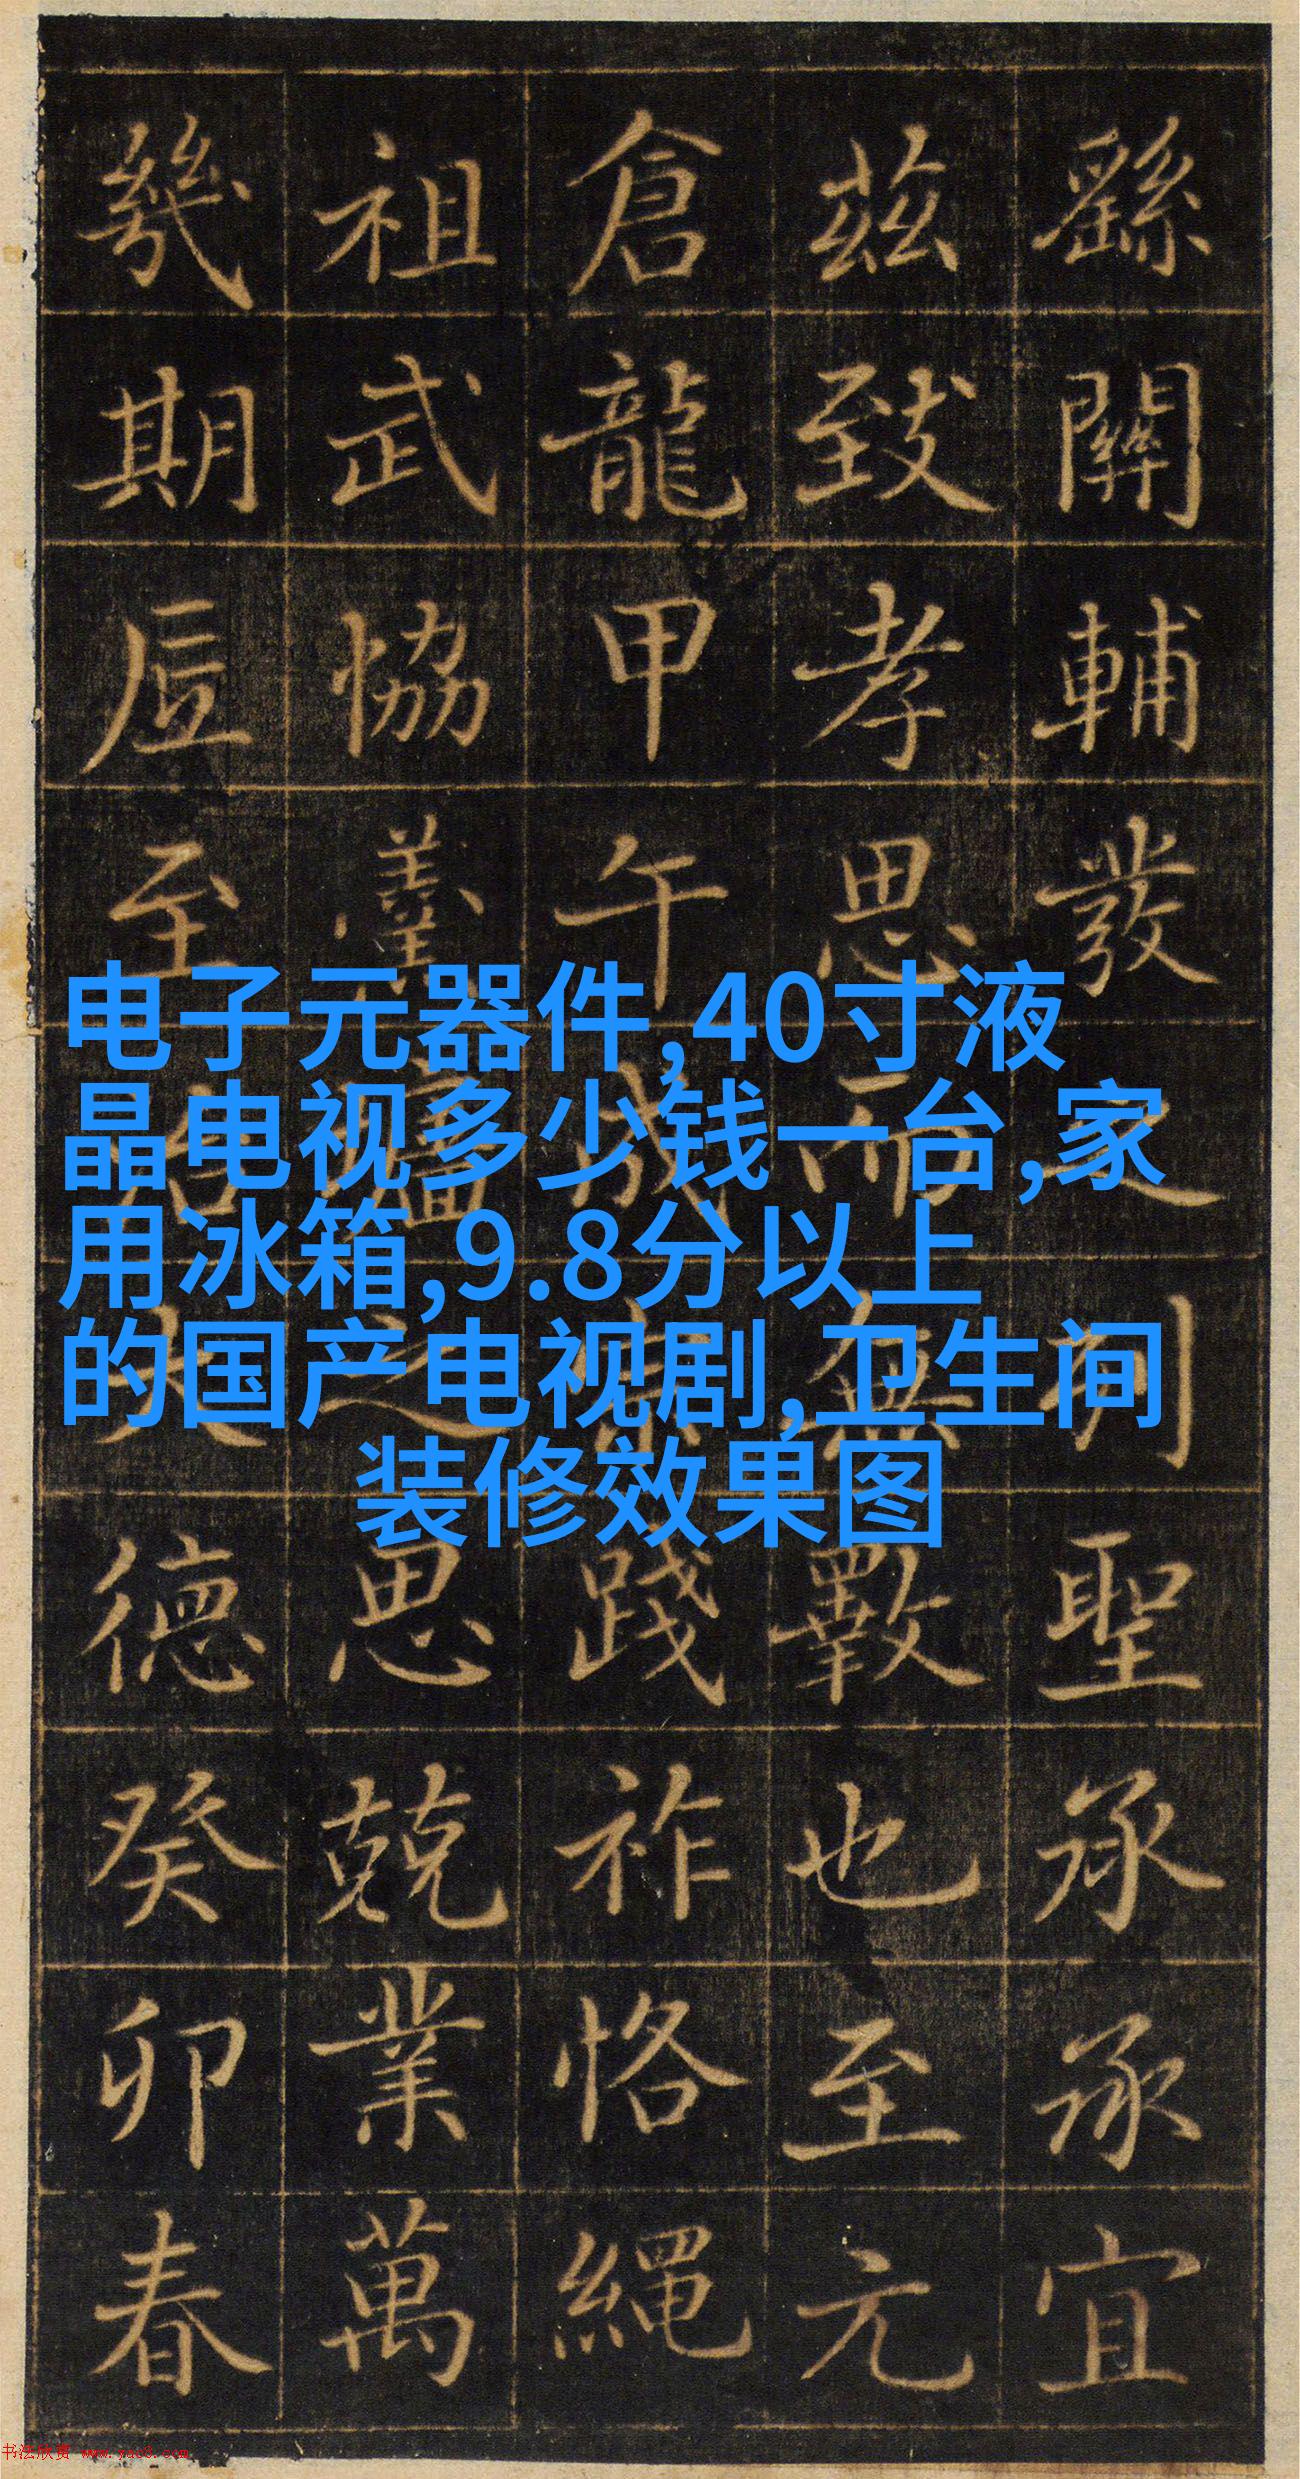 电子元器件,40寸液
晶电视多少钱一台,家
用冰箱,9.8分以上
的国产电视剧,卫生间
装修效果图
繇關輔發之列聖承承宜
茲致孝思而無斁也至元
倉龍甲午成宗踐祚恪繩
祖武協羹牆之思兢業萬
幾期底至治大德癸卯春
书法欣赏 www.yac8.com